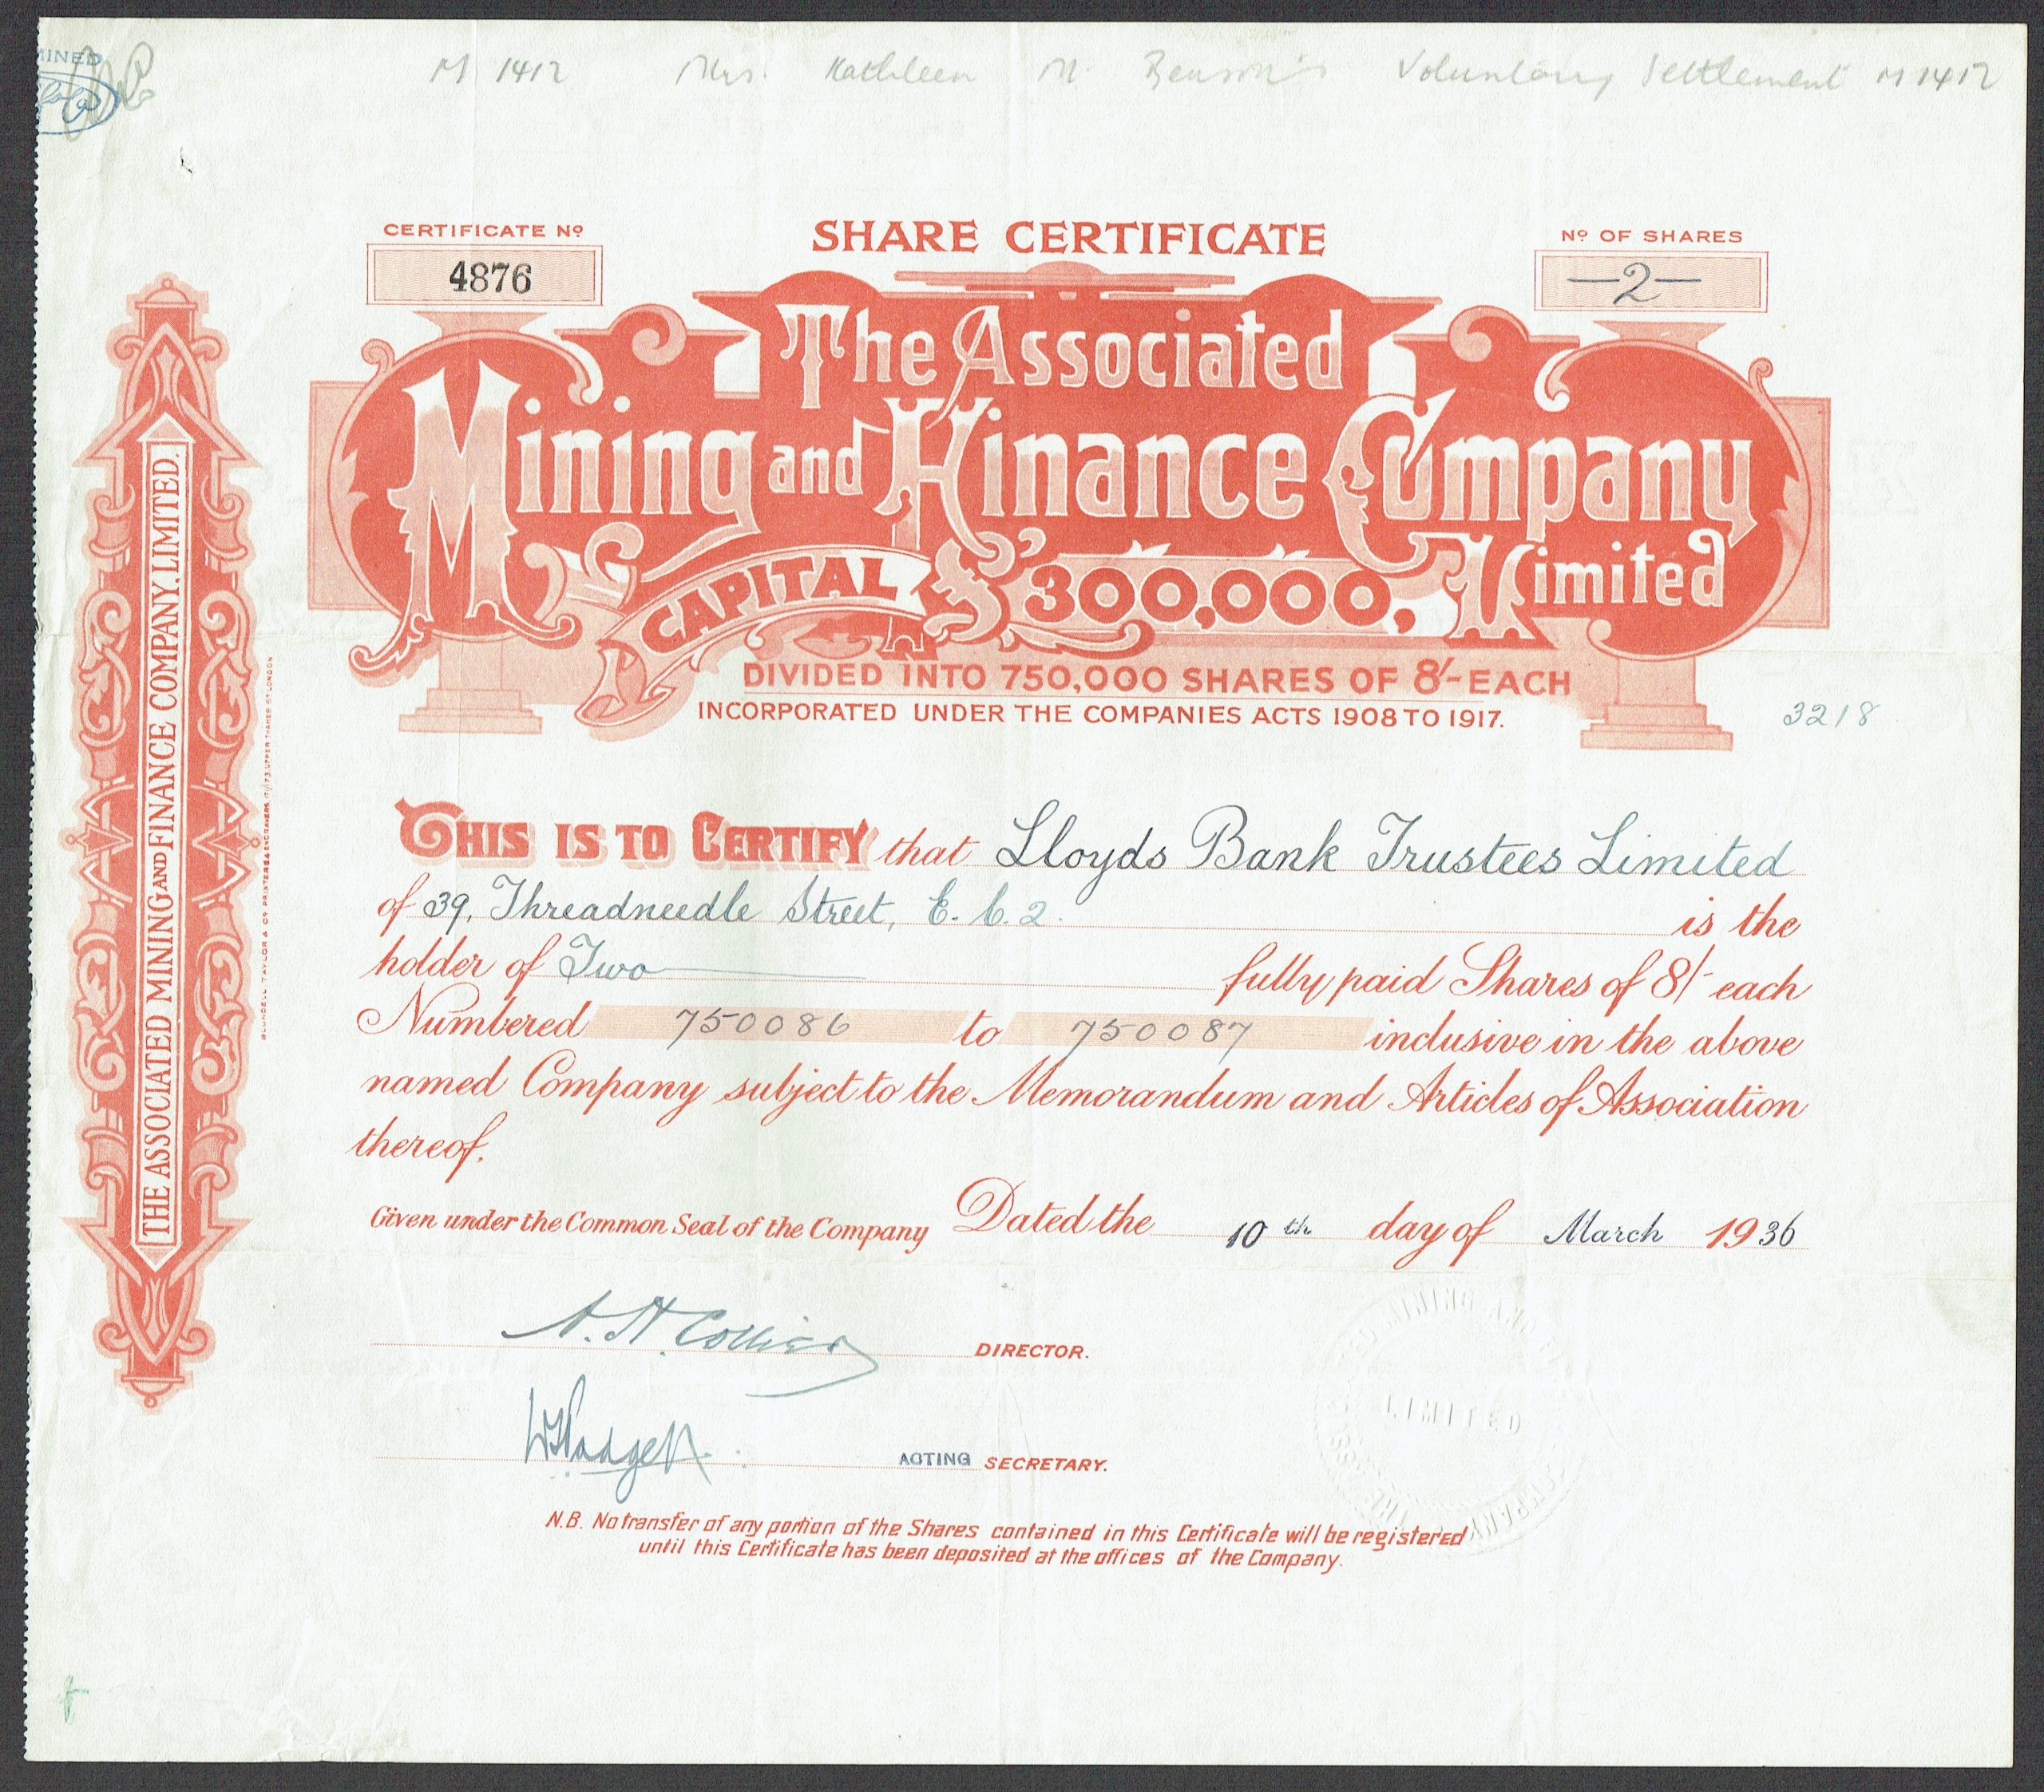 MINED
M 1412 Mrs. Kathleen M. Benson's Voluntary Settlement M 1412
CERTIFICATE Nº
4876
SHARE CERTIFICATE
Nº OF SHARES
—2—
The Associated
Mining and Finance Company
Limited
CAPITAL £300,000,
DIVIDED INTO 750,000 SHARES OF 8/- EACH
INCORPORATED UNDER THE COMPANIES ACTS 1908 TO 1917.
3218
THE ASSOCIATED MINING AND FINANCE COMPANY, LIMITED.
BLUNDELL TAYLOR & Cº PRINTERS & ENGRAVERS 171/173 UPPER THAMES ST LONDON
THIS IS TO CERTIFY that Lloyds Bank Trustees Limited
of 39, Threadneedle Street, E.C.2. is the
holder of Two fully paid Shares of 8/- each
Numbered 750086 to 750087 inclusive in the above
named Company subject to the Memorandum and Articles of Association
thereof.
Given under the Common Seal of the Company Dated the 10th day of March 1936
A. H. Collier DIRECTOR.
ACTING SECRETARY.
THE ASSOCIATED MINING AND COMPANY
LIMITED
N.B. No transfer of any portion of the Shares contained in this Certificate will be registered
until this Certificate has been deposited at the offices of the Company.